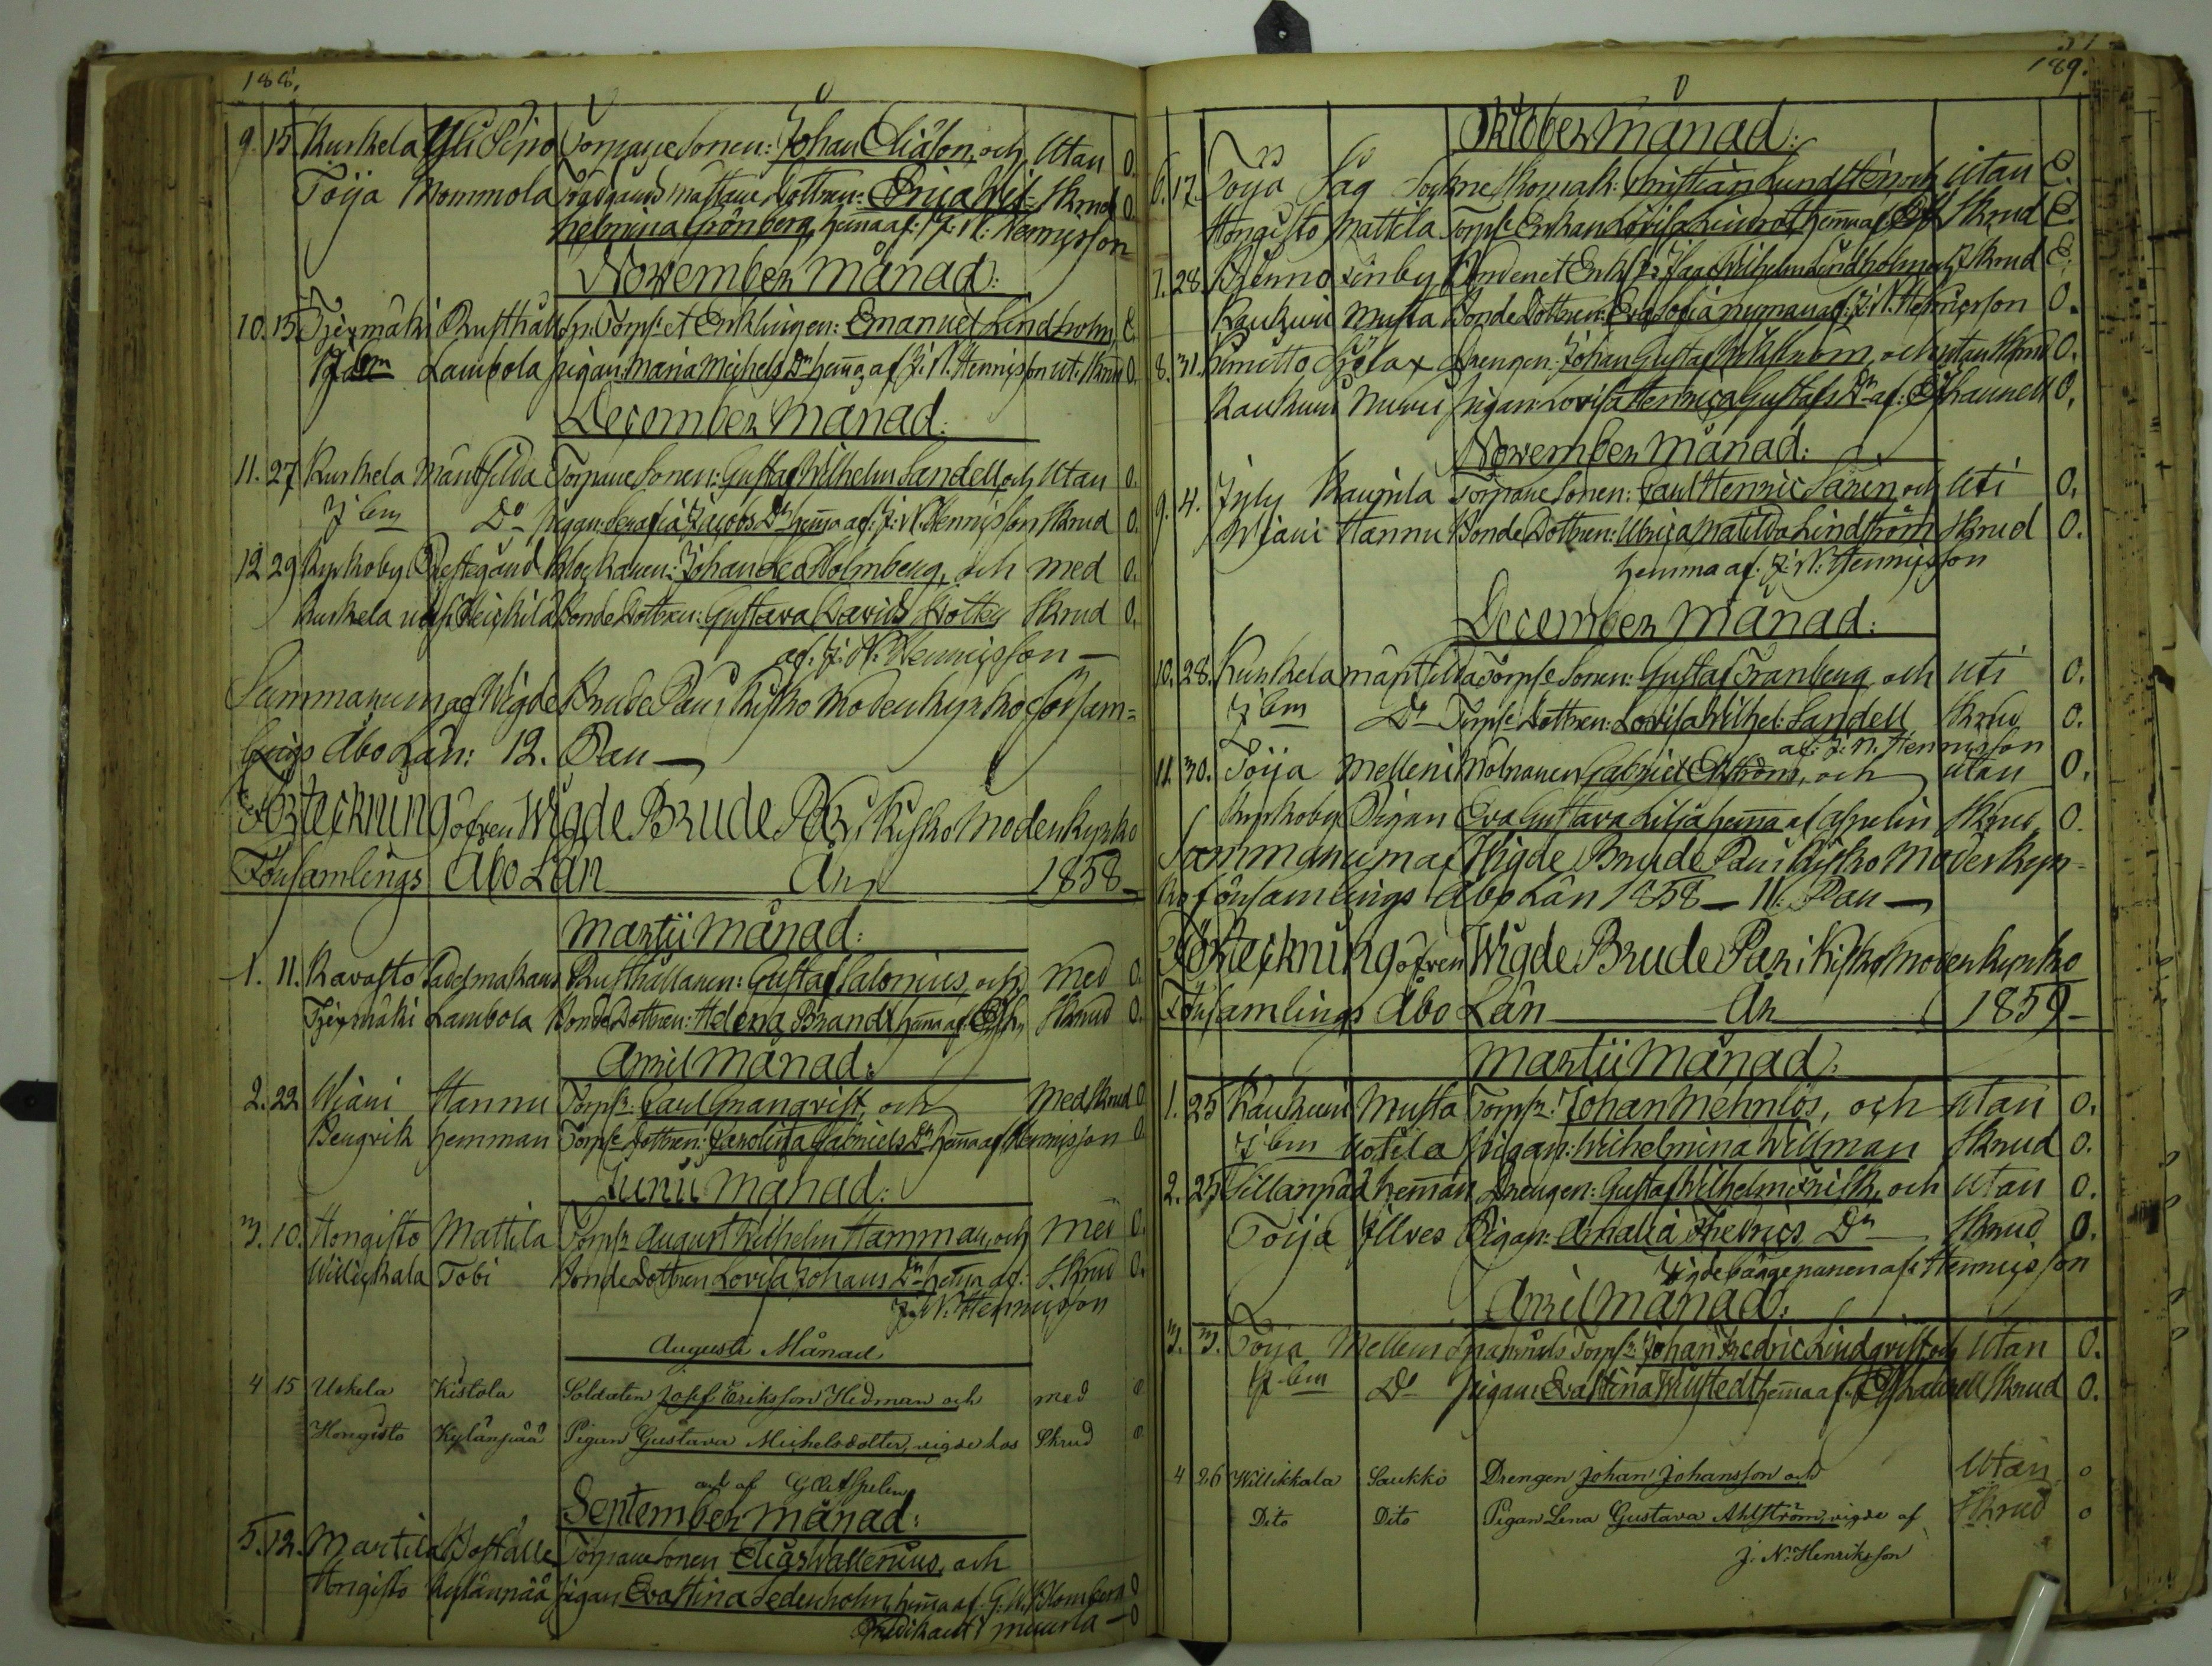 188.
9. 15 Kurkela Yli Sipo Torpare Sonen: Johan Eliäson, och Utan 0.
Toija Mommola Trädgårds mästare Dottren: Erica Wil- Skrud 0.
helmina Grönberg, hema af: J: N: Henricsson
November Månad:
10. 15 Rusthåll Torpst Enklingen: Emanuel Lindholm,
Idem Lambola pigan: Maria Michels Dr hema, af J: N. Henricsson ut. Skrud 0.
December Månad:
11. 27 Kurkela Torpare Sonen: Gustaf Wilhelm Sandell, och Utan 0.
Idem Do pigan: Jacobs Dr hema af: J: N. Henricsson Skrud 0.
12 29 Kyrkoby Prestegård Klockaren: Johan Holmberg, och med 0.
Kurkela Heickilä Bonde Dottren: Gustava Davids Dotter Skrud 0.
af: J: N: Henricsson
Summarum af Wigde Brude Par i Kisko Moderkyrko församl-
lings Åbo Län: 12. Par
Förteckning öfver Wigde Brude Par i Kisko Moderkyrko
Församlings Åbo Län År 1858
Martii Månad:
1. 11. Kavasto Rusthållaren: Gustaf Salonius, och med 0.
Lambola Bonde Dottren: Helena Brandt hema af: Skrud 0.
April Månad:
2. 22 Wiari Hannu Torpr: Carl Granqvist, och med Skrud 0
Bengvik hemman Torps Dottren: Carolina Gabriels Dr hema af Henricsson 0
Junii Månad:
3. 10. Hongisto Mattila Torpr August Wilhelm Hamman, och med 0.
Willickala Tobi Bonde Dottren Lovisa Johans Dr hema af: Skrud 0.
J: N: Henricsson
Augusti Månad
4 15 Uskela Kistola Soldaten Josef Eriksson Hedman och med 0
Hongisto Kylänpää Pigan Gustava Michelsdotter, vigde hos Skrud 0
af Aspelin
September Månad:
5. 12. Martila Boställe Torpare Sonen Elias Wallenius, och
Hongisto Kylänpää pigan Eva Stina Sedenholm, hema af: G. W. Blomberg 0
Predikant i Muurla 0
189.
Oktober Månad:
6. 17. Toija Såg Sockne Skomak: Christian Lundsten och Utan
Hongisto Mattila Torps Enkan Lovisa hema af Skrud
7. 28. Finby Bonden et Enkl: Isaac Wilhelm Lindholm och Skrud
Kaukuri Musta Bonde Dottren: Eva Sofia Nyman af: J: N. Henricsson 0.
8. 31. Kimitto Drengen: Johan Gustaf Wikström, och utan Skrud 0.
Kaukuri Nurmi pigan: Lovisa Henrica Gustafs Dr af: Laurell 0,
November Månad:
9. 4. Jyly Kaupila Torpare Sonen: Carl Henric Sarén, och uti 0.
Wiari Hannu Bonde Dottren: Ulrica Matilda Lindström Skrud 0.
hemma af: J: N: Henricsson
December Månad:
10. 28. Kurkela Torps Sonen: Gustaf Granberg och uti 0.
Idem Do Torps Dottren: Lovisa Wilhel: Sandell Skrud 0.
af: J: N. Henricsson
11. 30. Toija Melleri Mölnaren Gabriel Ekström, och utan 0.
Kyrkoby Pigan Eva Gustava Lilja hema af Aspelin Skrud 0.
Sammarum af Wigde Brude Par i Kisko Moderkyr-
ko församlings Åbo Län 1858 — 11. Par
Förteckning öfver Wigde Brude Par i Kisko Moderkyrko
Församlings Åbo Län År 1859
Martii Månad:
1. 25 Kaukuri Musta Torpr: Johan Mehnlös, och utan 0.
Idem Kotila Pigan: Wilhelmina Willman Skrud 0.
2. 25 Sillanpää heman Drengen: Gustaf Wilhelm Frisk, och Utan 0.
Toija Illves Pigan: Amalia Fredrics Dr Skrud 0.
Wigde bägge paren af: Henricsson
April Månad:
3. 3. Toija Melleri Torpr: Johan Fredric Lindqvist, och Utan 0.
Idem Do pigan: Eva Stina hema af Laurell Skrud 0.
4 26 Willikkala Saukko Drengen Johan Johansson och Utan 0
Dito Dito Pigan Lena Gustava Ahlström, vigde af Skrud 0
J: N: Henriksson